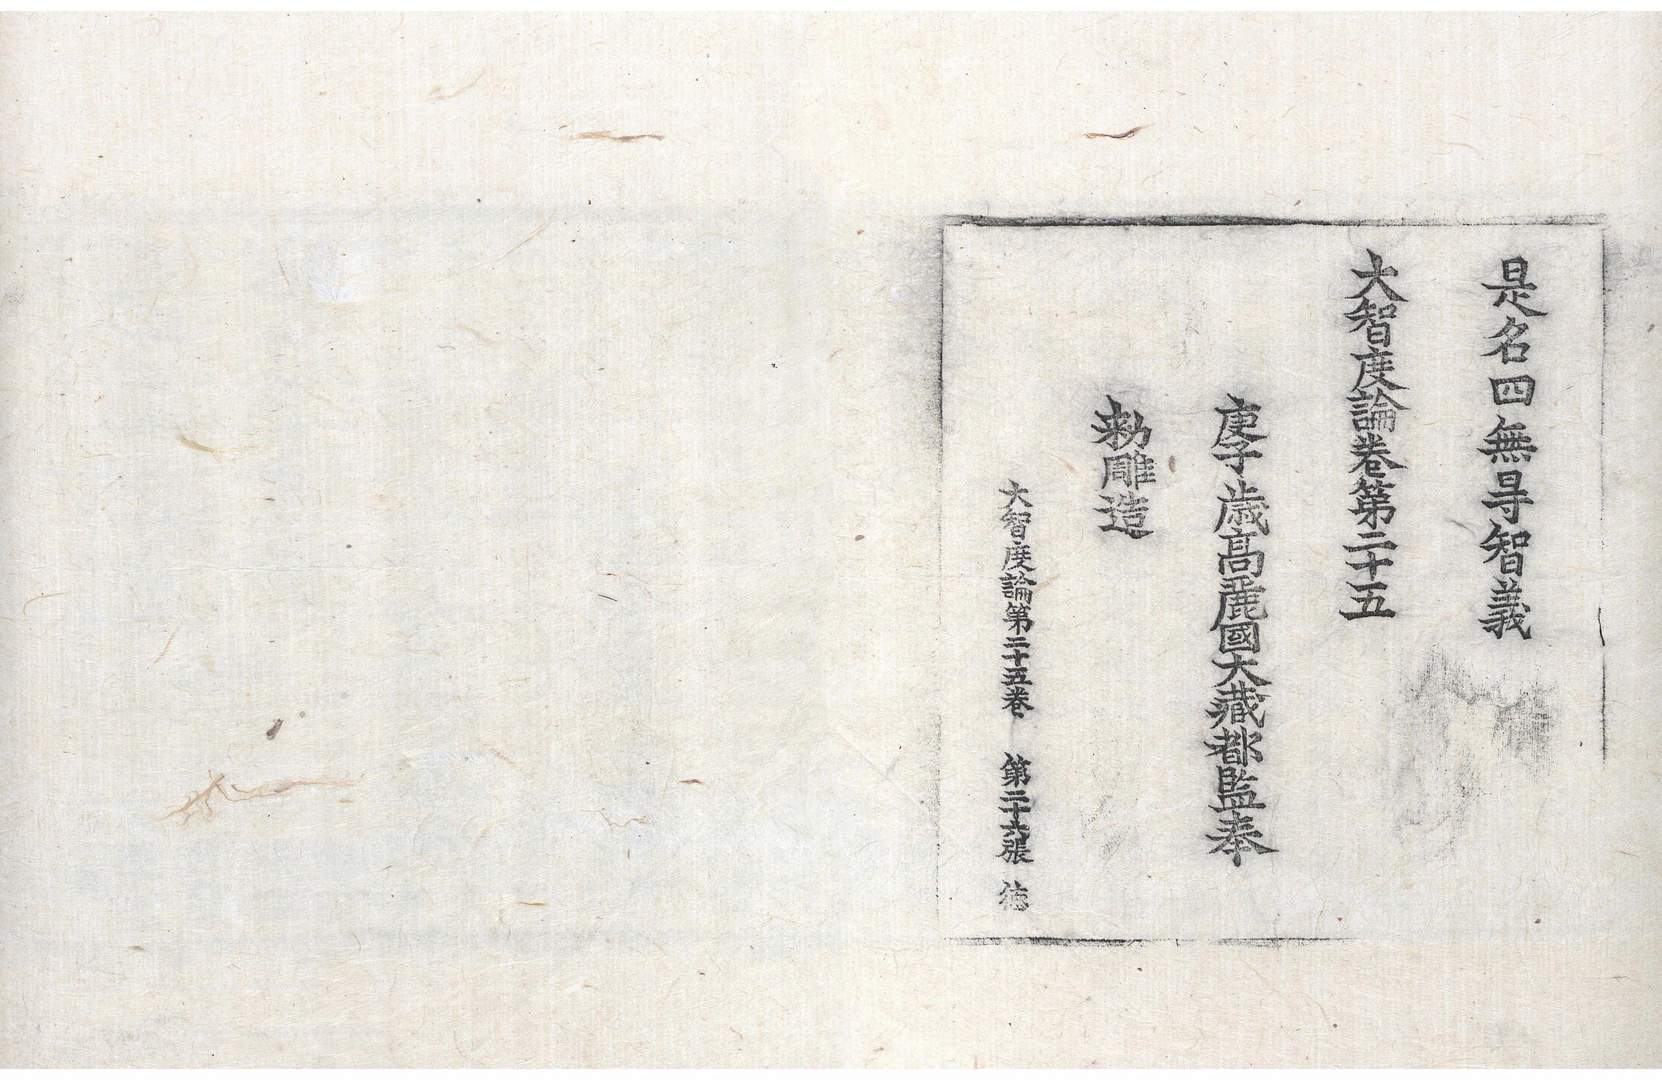 是名四無㝵智義
大智度論卷第二十五
庚子歲高麗國大藏都監奉
勑雕造
大智度論第二十五卷 第二十六張 德